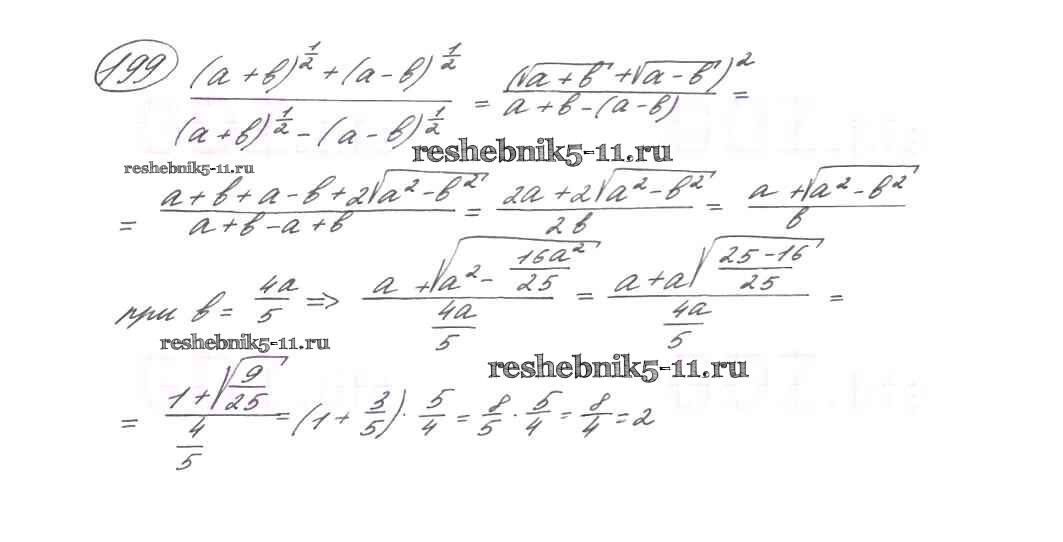 199 ((a+b)^{1/2}+(a-b)^{1/2})/((a+b)^{1/2}-(a-b)^{1/2}) = (√(a+b)+√(a-b))^2/(a+b-(a-b)) =
reshebnik5-11.ru
reshebnik5-11.ru
= (a+b+a-b+2√(a^2-b^2))/(a+b-a+b) = (2a+2√(a^2-b^2))/(2b) = (a+√(a^2-b^2))/b
при b = 4a/5 => (a+√(a^2-16a^2/25))/(4a/5) = (a+a√((25-16)/25))/(4a/5) =
reshebnik5-11.ru
reshebnik5-11.ru
= (1+√(9/25))/(4/5) = (1+3/5)·5/4 = 8/5·5/4 = 8/4 = 2